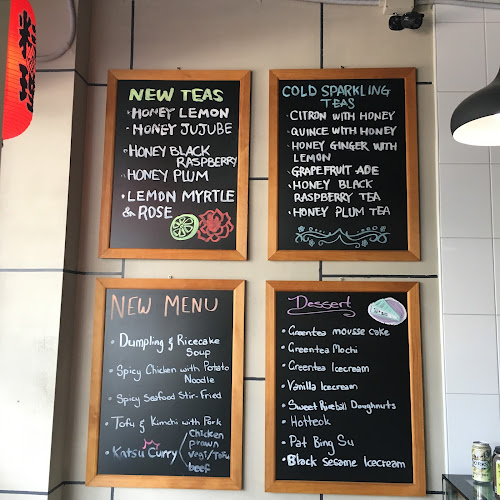 NEW TEAS
• HONEY LEMON
• HONEY JUJUBE
• HONEY BLACK
RASPBERRY
• HONEY PLUM
• LEMON MYRTLE
& ROSE
COLD SPARKLING
TEAS
• CITRON WITH HONEY
• QUINCE WITH HONEY
• HONEY GINGER WITH
LEMON
• GRAPEFRUIT ADE
• HONEY BLACK
RASPBERRY TEA
• HONEY PLUM TEA
NEW MENU
• Dumpling & Ricecake
Soup
• Spicy Chicken with Potato
Noodle
• Spicy Seafood Stir-Fried
• Tofu & Kimchi with Pork
• Katsu Curry
Chicken
prawn
vegi/Tofu
beef
Dessert
• Greentea mousse cake
• Greentea Mochi
• Greentea Icecream
• Vanilla Icecream
• Sweet Riceball Doughnuts
• Hotteok
• Pat Bing Su
• Black Sesame Icecream